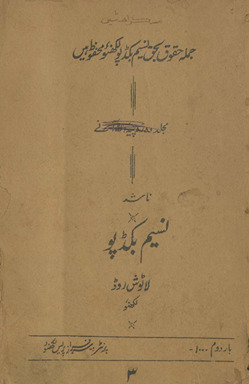 جملہ حقوق بحق نسیم بکڈپو لکھنؤ محفوظ ہیں
مجلد
ناشر
نسیم بکڈپو
لاٹوش روڈ
لکھنؤ
بار دوم ۱۰۰۰
پرنٹر سرفراز پریس لکھنؤ
۳